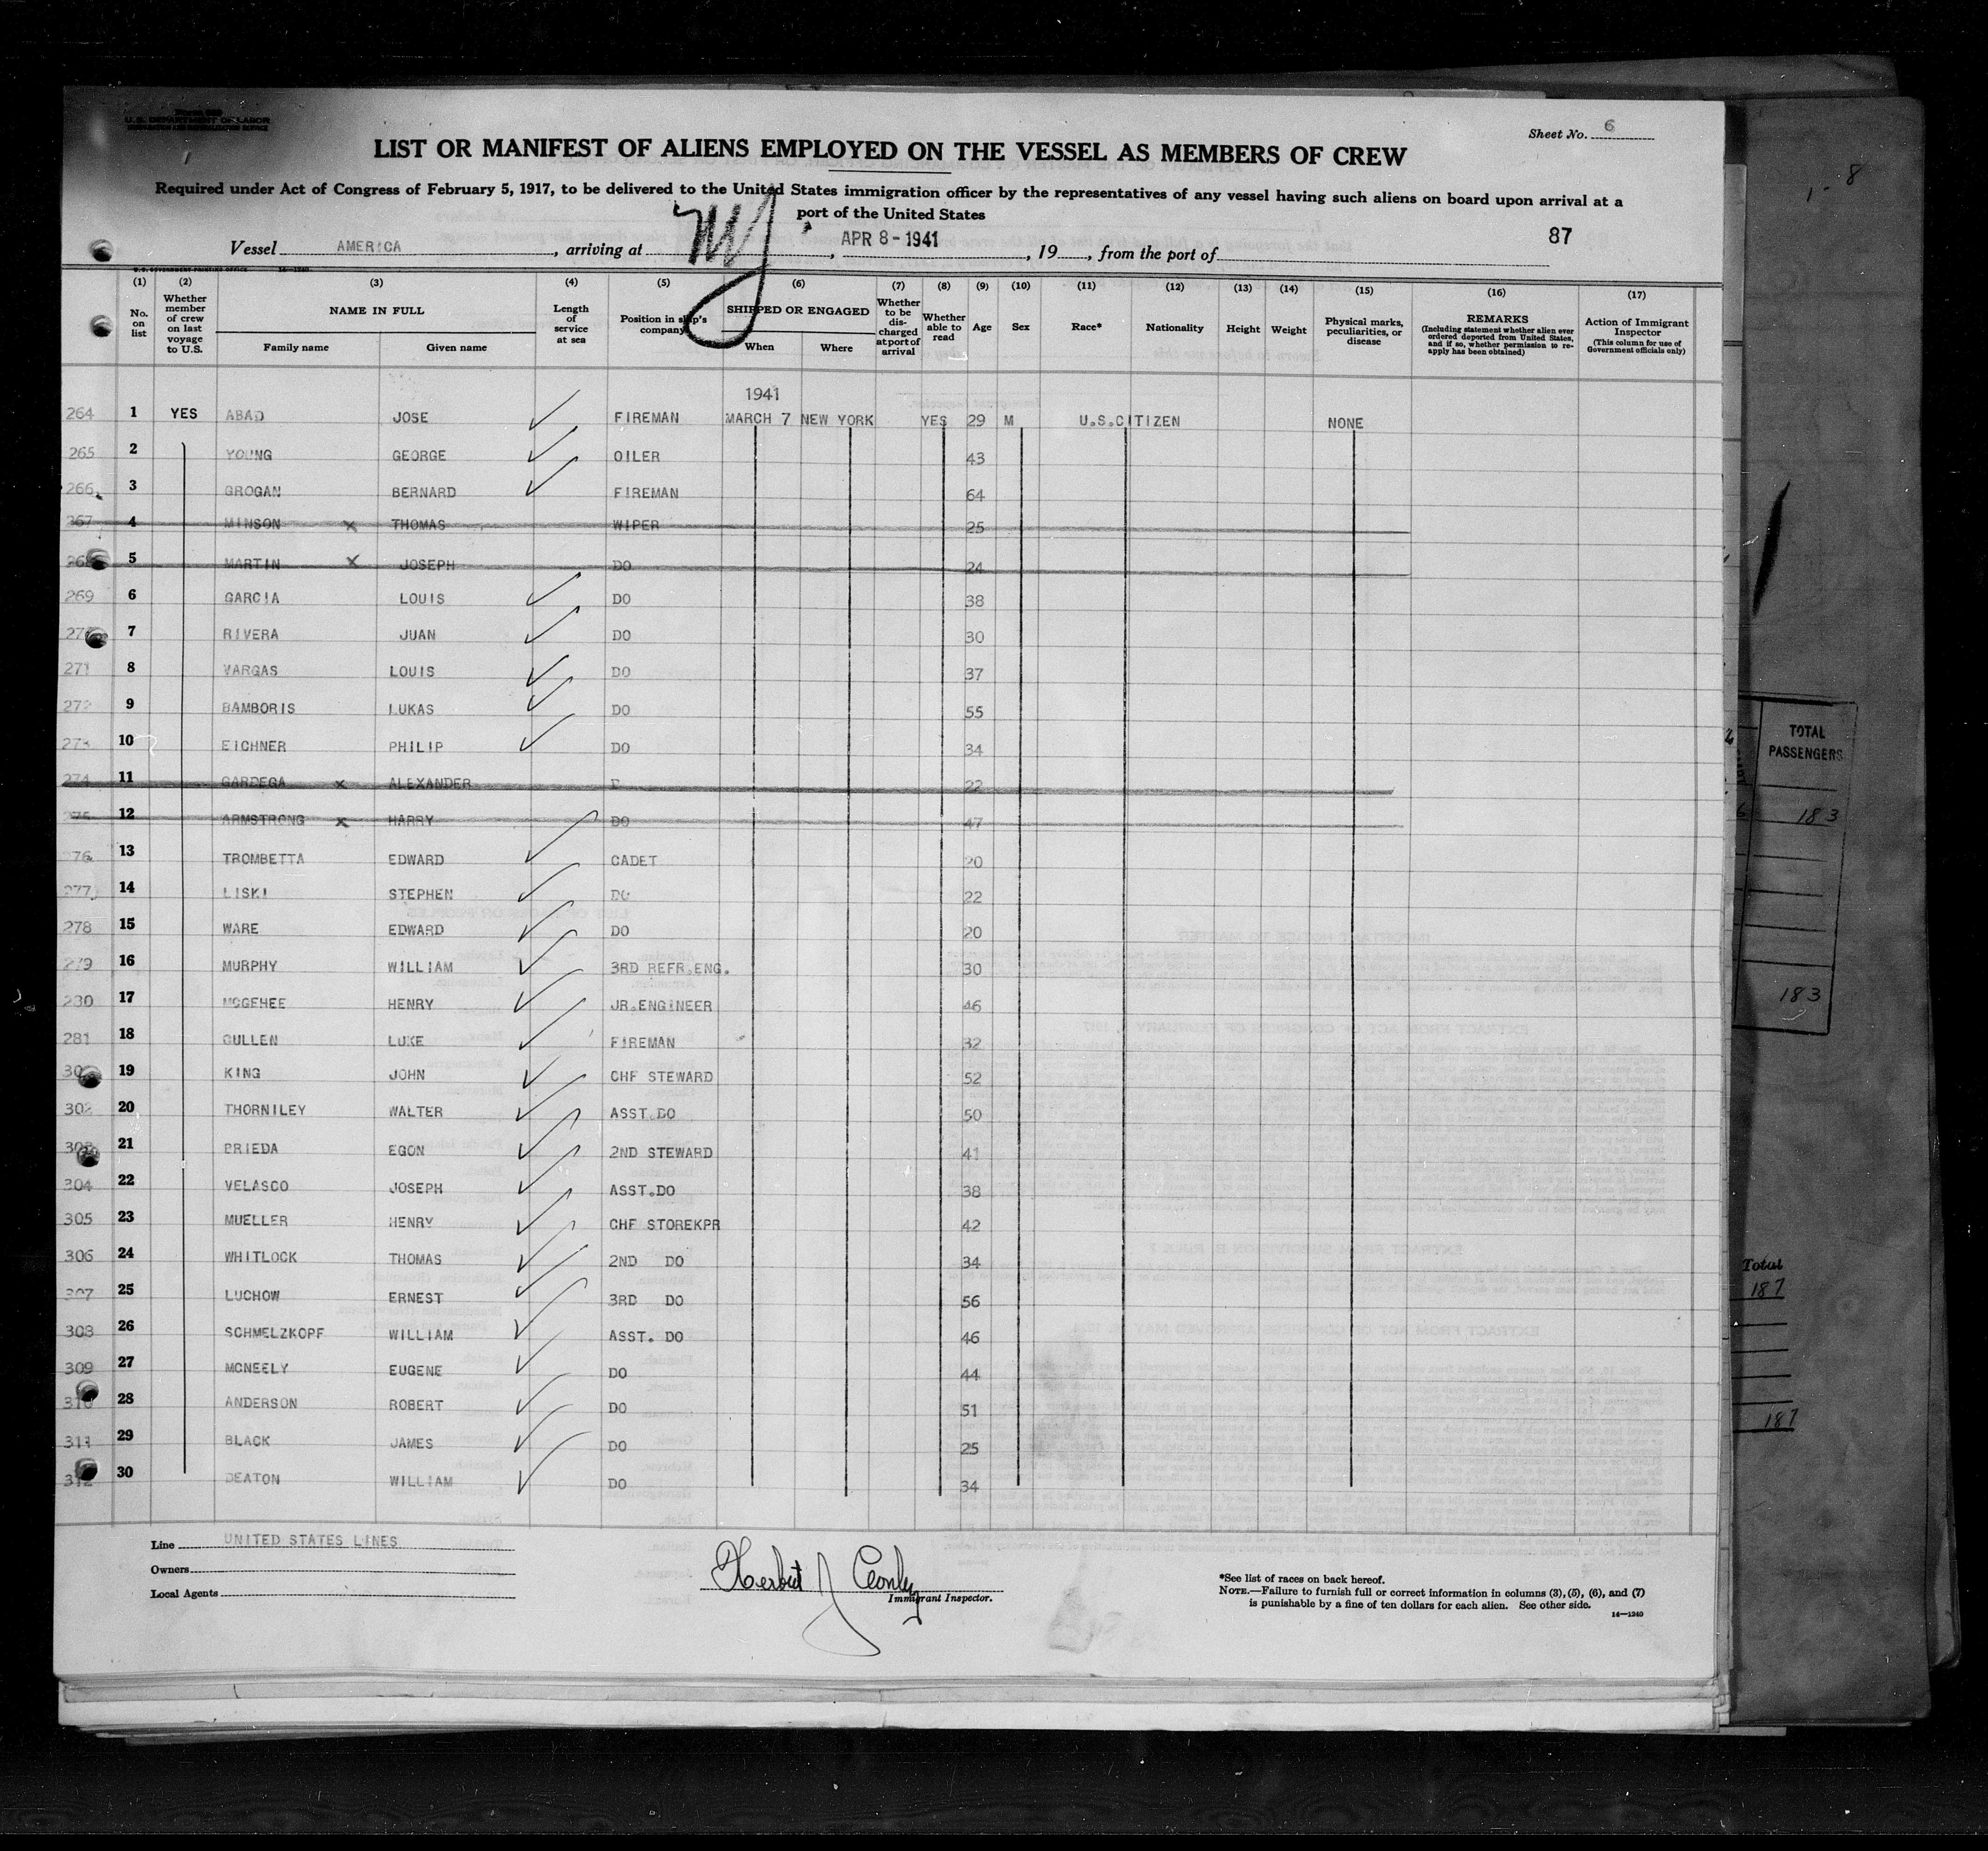 U.S. DEPARTMENT OF LABOR
IMMIGRATION AND NATURALIZATION SERVICE
Sheet No. 6
LIST OR MANIFEST OF ALIENS EMPLOYED ON THE VESSEL AS MEMBERS OF CREW
Required under Act of Congress of February 5, 1917, to be delivered to the United States immigration officer by the representatives of any vessel having such aliens on board upon arrival at a
port of the United States
Vessel AMERICA, arriving at NY, APR 8 - 1941, 19, from the port of
87
U.S. GOVERNMENT PRINTING OFFICE 14—1240
(1) No. on list
(2) Whether member of crew on last voyage to U.S.
(3) NAME IN FULL Family name Given name
(4) Length of service at sea
(5) Position in ship's company
(6) SHIPPED OR ENGAGED When Where
(7) Whether to be discharged at port of arrival
(8) Whether able to read
(9) Age
(10) Sex
(11) Race*
(12) Nationality
(13) Height
(14) Weight
(15) Physical marks, peculiarities, or disease
(16) REMARKS (Including statement whether alien ever ordered deported from United States, and if so, whether permission to reapply has been obtained)
(17) Action of Immigrant Inspector (This column for use of Government officials only)
1941
264 1 YES ABAD JOSE FIREMAN MARCH 7 NEW YORK YES 29 M U.S.CITIZEN NONE
265 2 YOUNG GEORGE OILER 43
266 3 GROGAN BERNARD FIREMAN 64
267 4 MINSON X THOMAS WIPER 25
5 MARTIN X JOSEPH DO 24
269 6 GARCIA LOUIS DO 38
7 RIVERA JUAN DO 30
271 8 VARGAS LOUIS DO 37
272 9 BAMBORIS LUKAS DO 55
273 10 EICHNER PHILIP DO 34
274 11 GARDEGA X ALEXANDER 22
12 ARMSTRONG X HARRY DO 47
276 13 TROMBETTA EDWARD CADET 20
277 14 LISKI STEPHEN DO 22
278 15 WARE EDWARD DO 20
279 16 MURPHY WILLIAM 3RD REFR.ENG. 30
280 17 MCGEHEE HENRY JR.ENGINEER 46
281 18 CULLEN LUKE FIREMAN 32
19 KING JOHN CHF STEWARD 52
302 20 THORNILEY WALTER ASST.DO 50
303 21 PRIEDA EGON 2ND STEWARD 41
304 22 VELASCO JOSEPH ASST.DO 38
305 23 MUELLER HENRY CHF STOREKPR 42
306 24 WHITLOCK THOMAS 2ND DO 34
307 25 LUCHOW ERNEST 3RD DO 56
308 26 SCHMELZKOPF WILLIAM ASST. DO 46
309 27 MCNEELY EUGENE DO 44
310 28 ANDERSON ROBERT DO 51
311 29 BLACK JAMES DO 25
312 30 DEATON WILLIAM DO 34
Line UNITED STATES LINES
Owners
Local Agents
Herbert J Conley
Immigrant Inspector.
*See list of races on back hereof.
NOTE.—Failure to furnish full or correct information in columns (3), (5), (6), and (7)
is punishable by a fine of ten dollars for each alien. See other side.
14—1240
TOTAL
PASSENGERS
183
183
Total
187
187